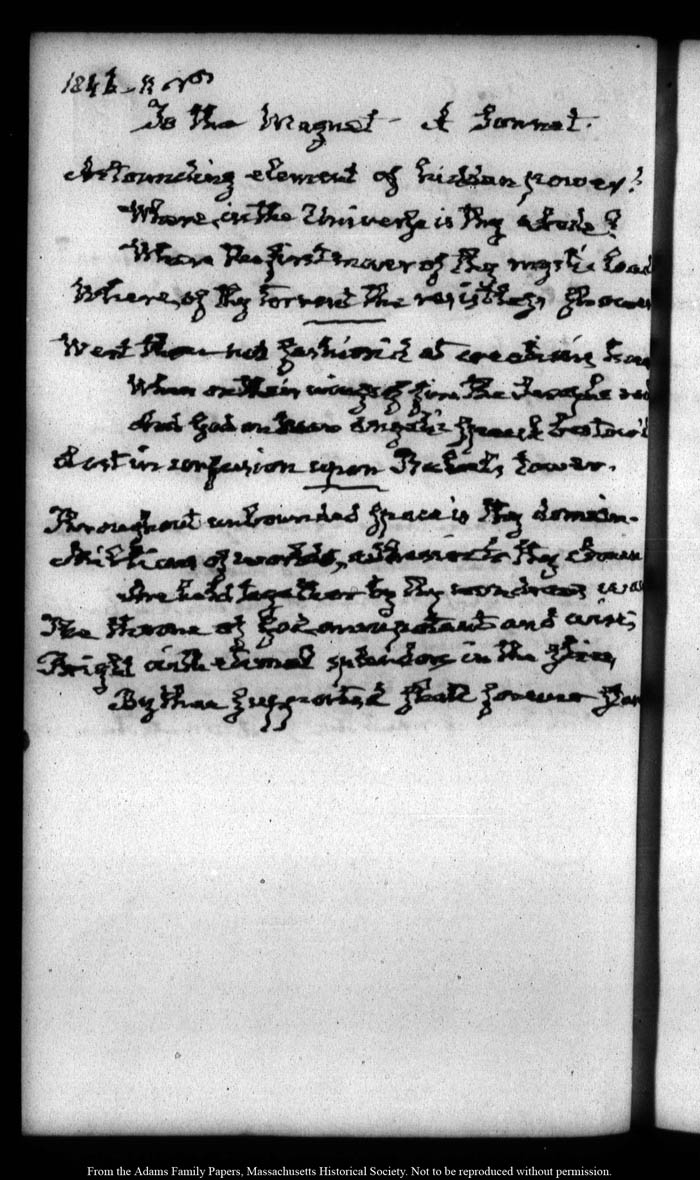 To the Magnet - A Sonnet.
Astounding element of hidden power!
Where, in the Universe is thy abode?
Where the first mover of thy mystic
Where, of thy torrent the resistless
Wert thou not fashion'd at creation's
When on their wings of fire the Seraphs
And God on angelic
Lost in confusion upon Babel's tower.
Throughout unbounded space is thy domain.
Millions of worlds,
Are held together by thy wondrous
The throne of God omnipotent and wise,
Bright with eternal splendors in the skies
By thee supported shall forever
From the Adams Family Papers, Massachusetts Historical Society. Not to be reproduced without permission.